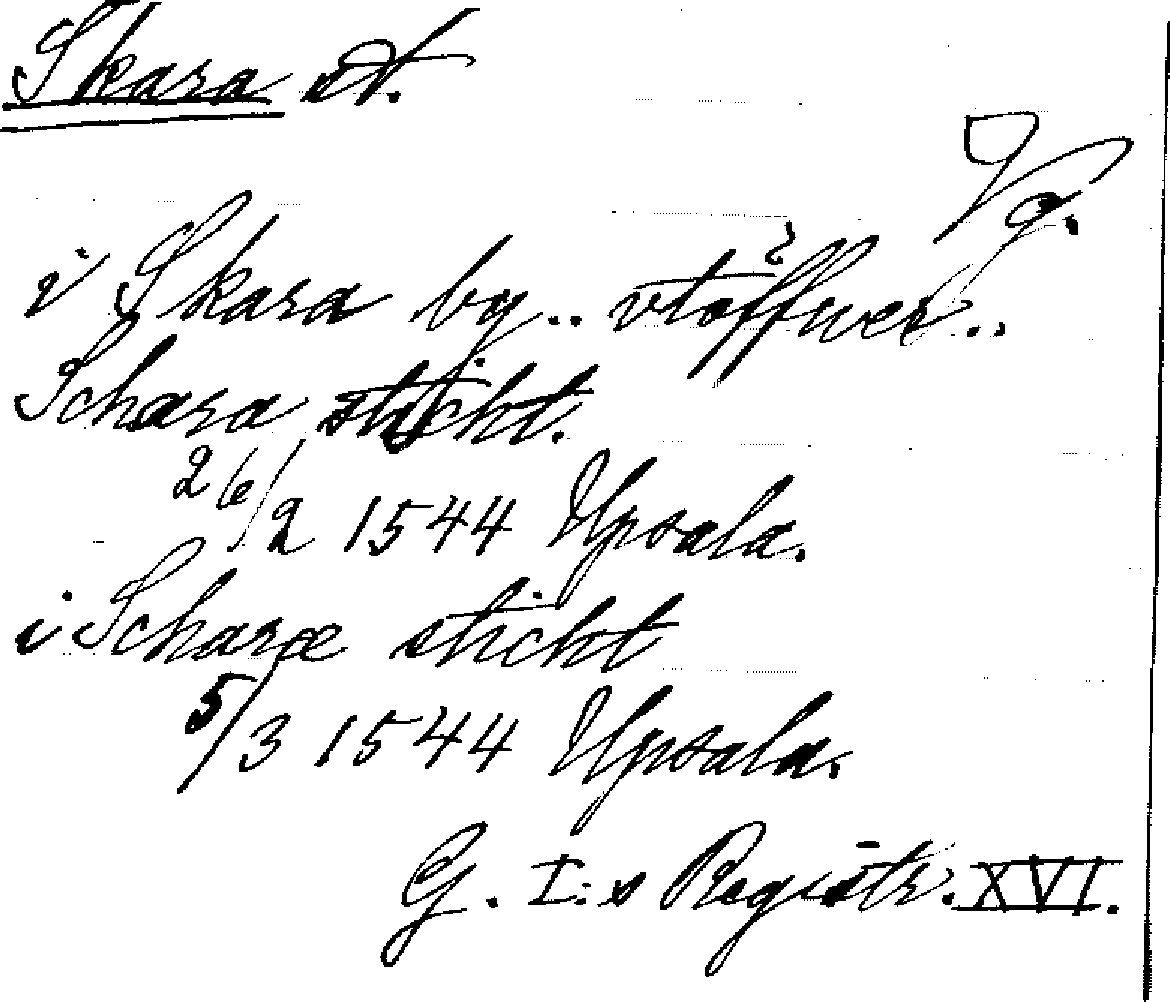 Skara st.
Vg.
i Skara by .. vtöffwer ..
Schara sticht.
26/2 1544 Upsala.
i Scharæ sticht
5/3 1544 Upsala.
G. I:s Registr. XVI.